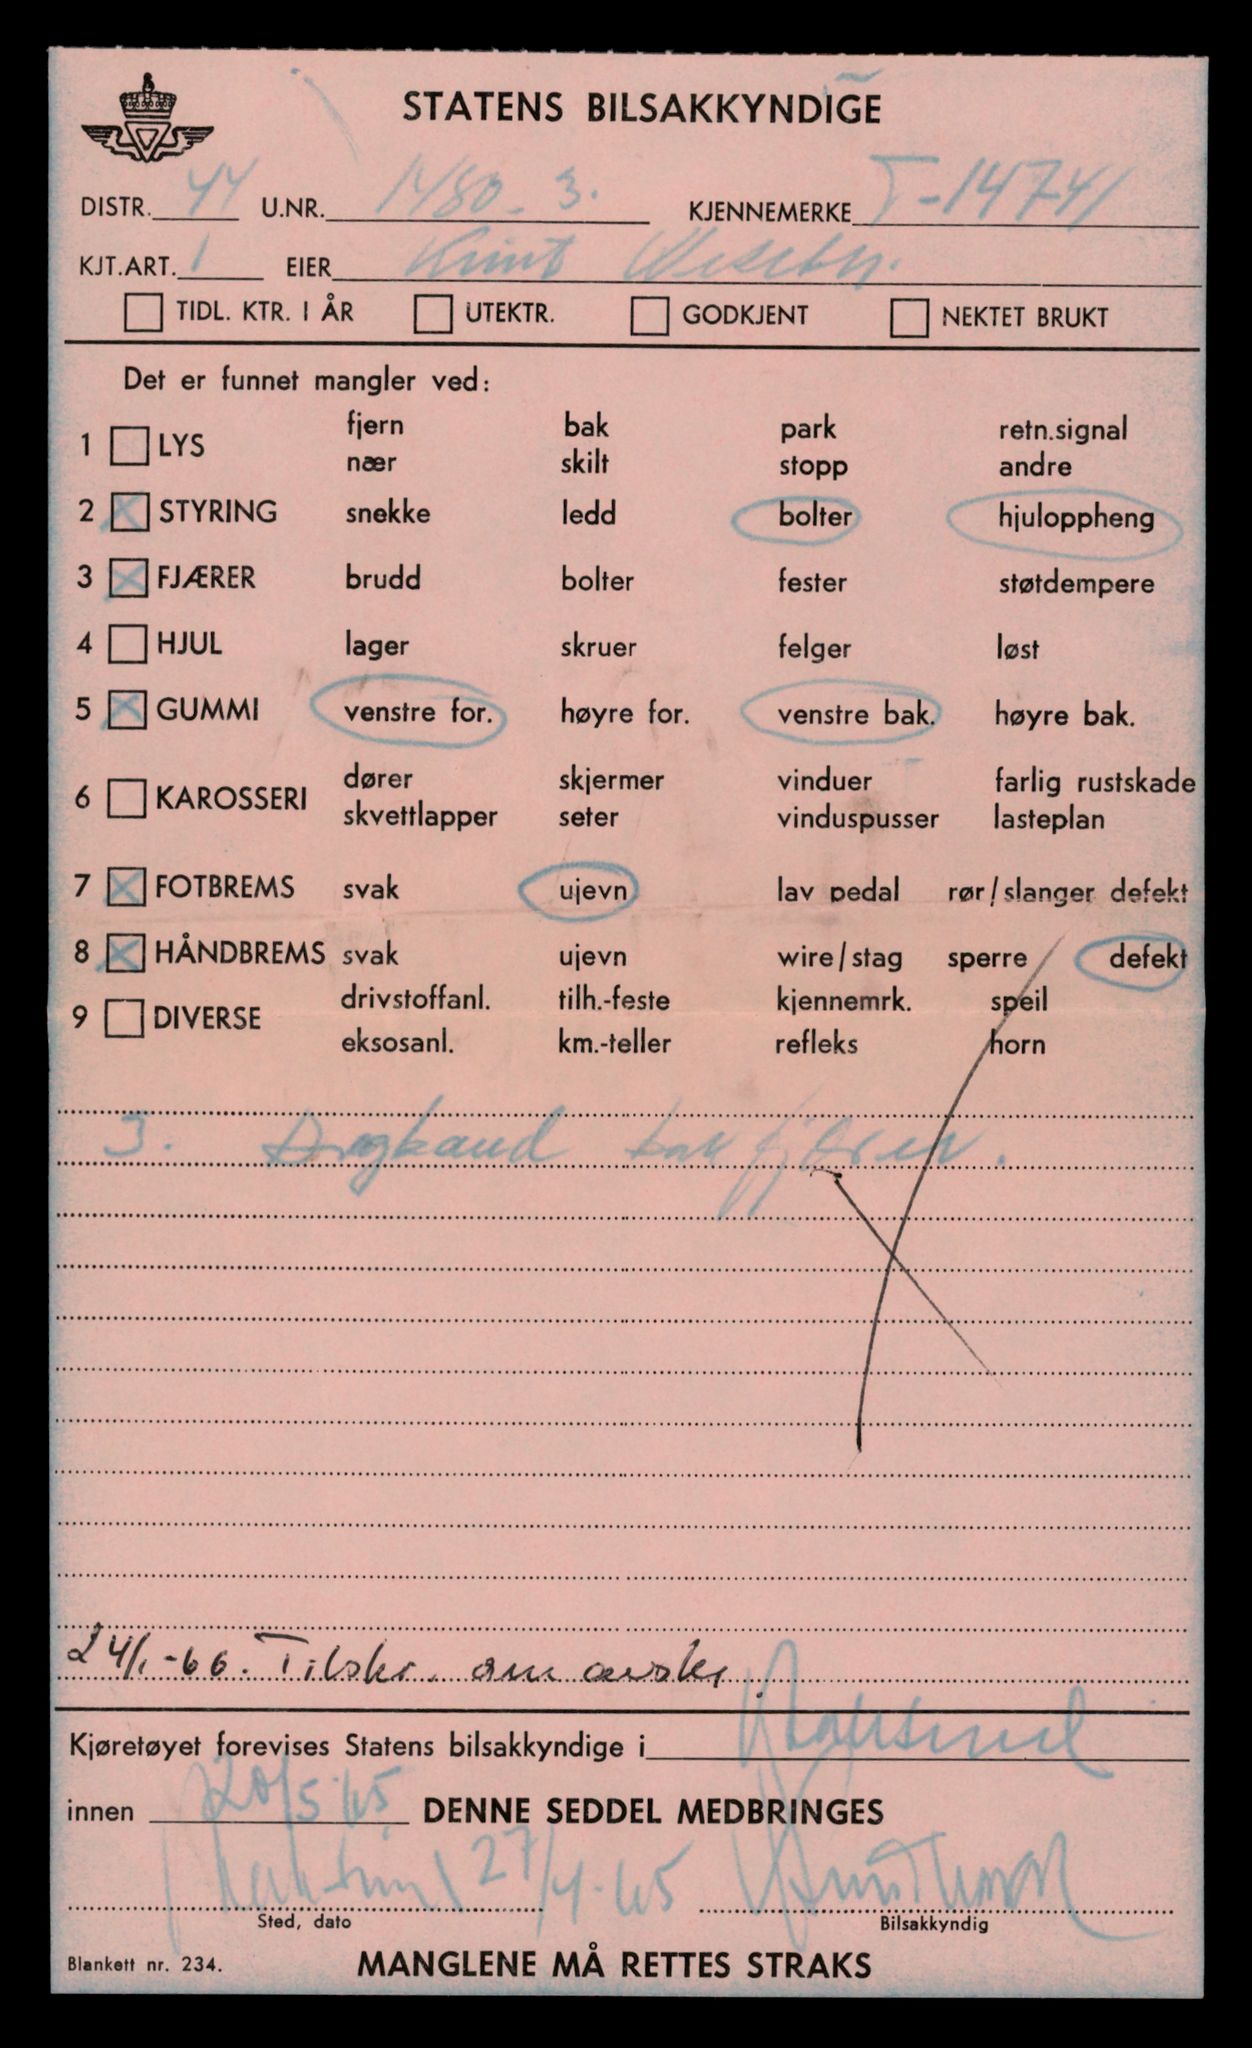 STATENS BILSAKKYNDIGE
DISTR. 44 U.NR. 1480-3. KJENNEMERKE T-14741
KJT.ART. 1 EIER Knut
TIDL. KTR. I ÅR UTEKTR. GODKJENT NEKTET BRUKT
Det er funnet mangler ved:
1 LYS fjern bak park retn.signal
nær skilt stopp andre
2 STYRING snekke ledd bolter hjuloppheng
3 FJÆRER brudd bolter fester støtdempere
4 HJUL lager skruer felger løst
5 GUMMI venstre for. høyre for. venstre bak. høyre bak.
6 KAROSSERI dører skjermer vinduer farlig rustskade
skvettlapper seter vinduspusser lasteplan
7 FOTBREMS svak ujevn lav pedal rør/slanger defekt
8 HÅNDBREMS svak ujevn wire/stag sperre defekt
9 DIVERSE drivstoffanl. tilh.-feste kjennemrk. speil
eksosanl. km.-teller refleks horn
3. bak fjører.
24/1-66. Tilskr. om avskr
Kjøretøyet forevises Statens bilsakkyndige i
innen 20/5 65 DENNE SEDDEL MEDBRINGES
27/4-65
Sted, dato Bilsakkyndig
Blankett nr. 234. MANGLENE MÅ RETTES STRAKS